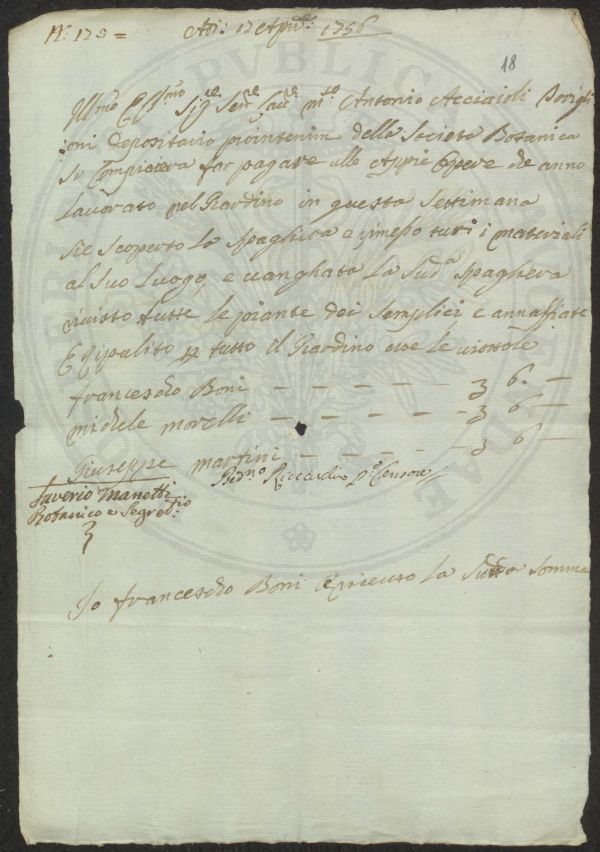 N.° 123 = Adi: 12 Aprile: 1756
18
Ill.mo E Sig.re Sen.re Cav.re Antonio Acciaioli Torigli
ioni Depositario prointerim della Società Botanica
Si Compiacera far pagare alle Appie Opere che anno
Lavorato nel Giardino in questa Settimana
sie scoperto la spaghera e rimesso tuti i materiali
al Suo Luogo e vanghata La Sud.a Spaghera
rivisto tutte le piante dei Semplici e annaffiate
E Ripulito p tutto il Giardino cioe le viottole
francescho Boni — — — — — 3 6. —
michele morelli — — — — — 3 6 —
Giuseppe martini — — — — — 3 6 —
Saverio Manetti Bern.o Riccardi P.o Censore
Botanico e Segret.rio
3
Io francescho Boni o ricieuto La Sudda Somma